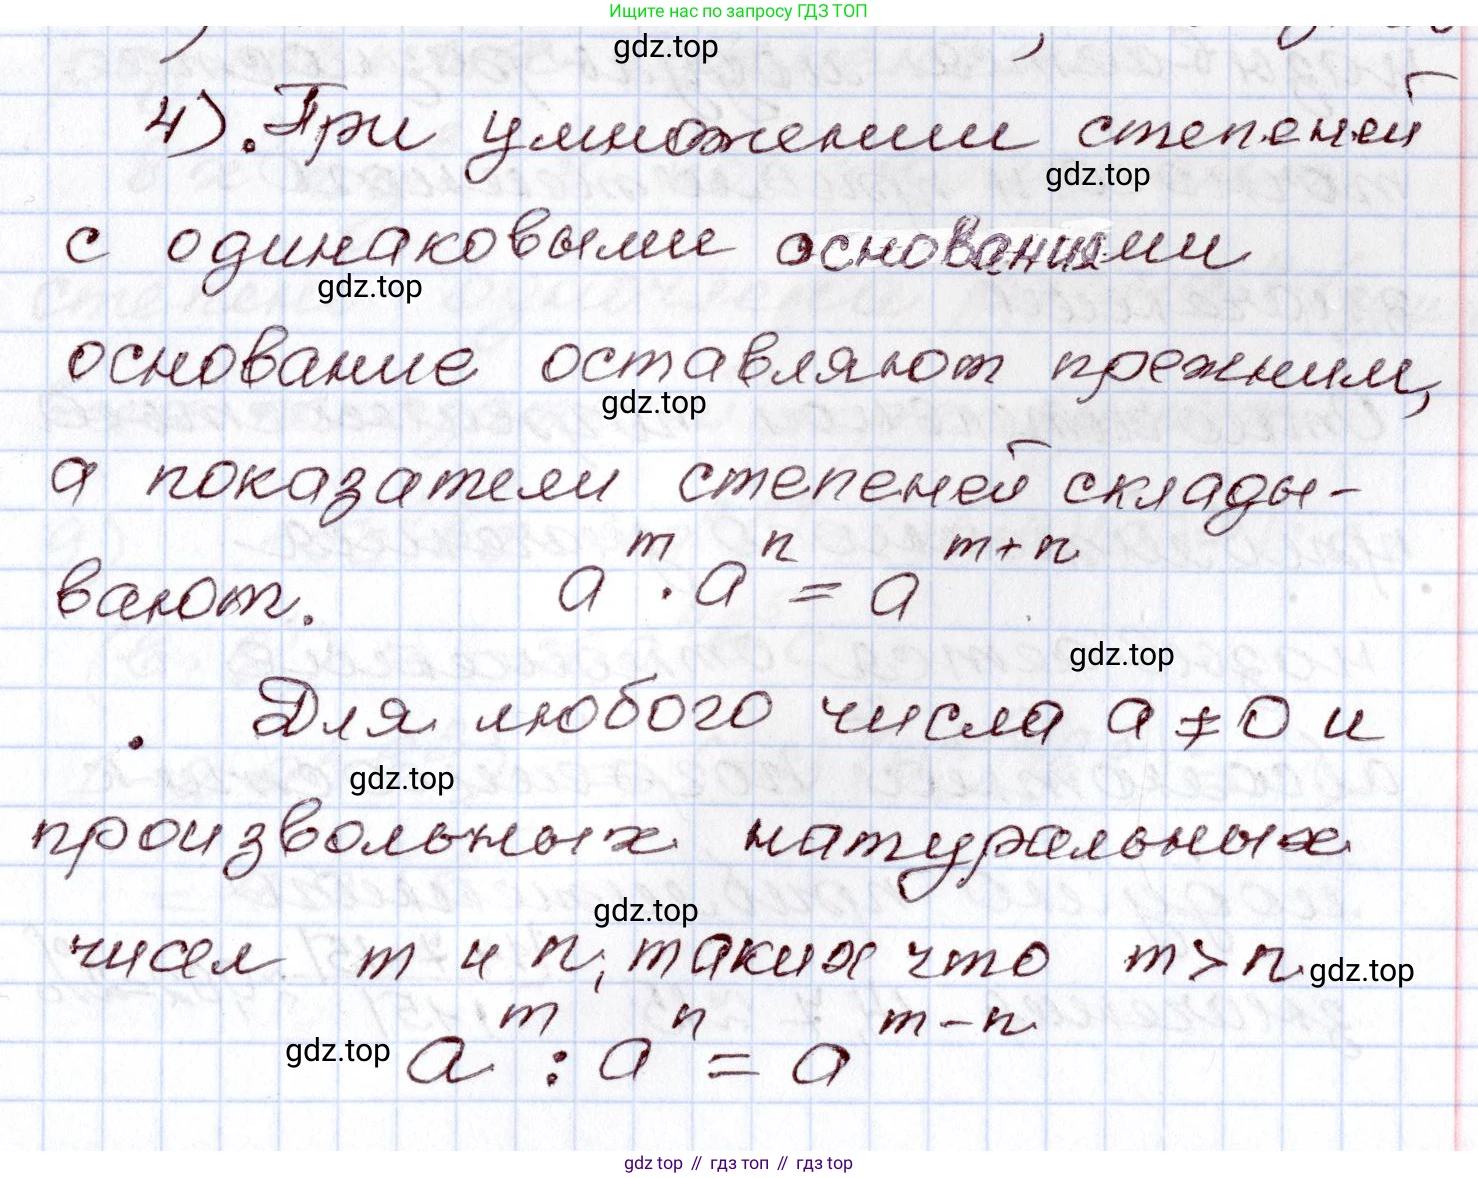 Ищите нас по запросу ГДЗ ТОП
gdz.top
4). При умножении степеней
gdz.top
с одинаковыми основаниями
gdz.top
основание оставляют прежним,
gdz.top
а показатели степеней склады-
вают. a^m · a^n = a^{m+n}
gdz.top
• Для любого числа a ≠ 0 и
gdz.top
произвольных натуральных
gdz.top
чисел m и n, таких что m > n
gdz.top
a^m : a^n = a^{m-n}
gdz.top
gdz top // гдз топ // gdz top